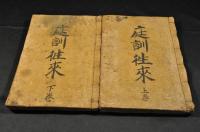 庭訓往來
上卷
庭訓往來
下卷